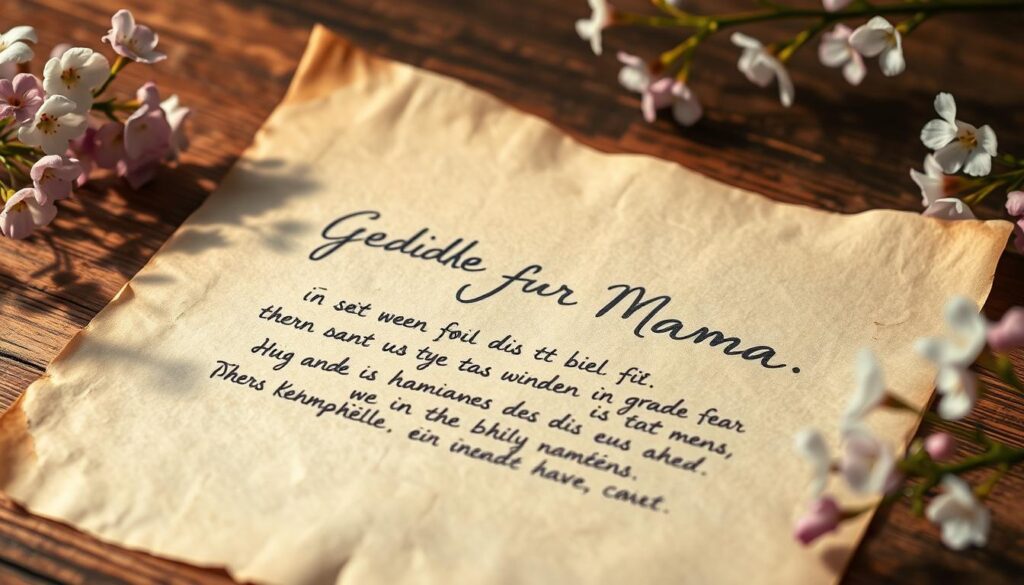 Gedidle fur Mama.
in set ween foil dis tt biel fit.
thern sant us tye tas winden in grade fear
Hug ande is hamianes des dis eus ahed.
is tat mens,
Thers Kehmphelle, we in the bhily namtens.
ein inendt have, caret.